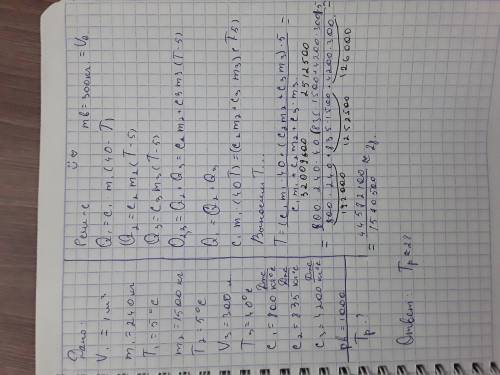 Дано:
V₁ = 1 м³
m₁ = 240 кг
T₁ = 5°C
m₂ = 1500 кг
T₂ = 5°C
V₃ = 300 л
T₃ = 40°C
c₁ = 800 Дж/кг°C
c₂ = 835 Дж/кг°C
c₃ = 4200 Дж/кг°C
ρв = 1000
Tр - ?
mв = 300 кг = V₀
Q₁ = c₁ m₁ (40 - T)
Q₂ = c₂ m₂ (T - 5)
Q₃ = c₃ m₃ (T - 5)
Q₂,₃ = Q₂ + Q₃ = c₂ m₂ + c₃ m₃ (T - 5)
Q₁ = Q₂ + Q₃
c₁ m₁ (40 T) = (c₂ m₂ + c₃ m₃) (T 5)
Выносим T...
T = (c₁ m₁ 40 + (c₂ m₂ + c₃ m₃) · 5 =
c₁ m₁ + c₂ m₂ + c₃ m₃
2512500
= 800 · 240 · 40 (835 · 1500 + 4200 · 300) 5
800 · 240 + 835 · 1500 + 4200 · 300
192000 1252500 126000
= 44582100 ≈ 28
1580500
Ответ: Tр ≈ 28